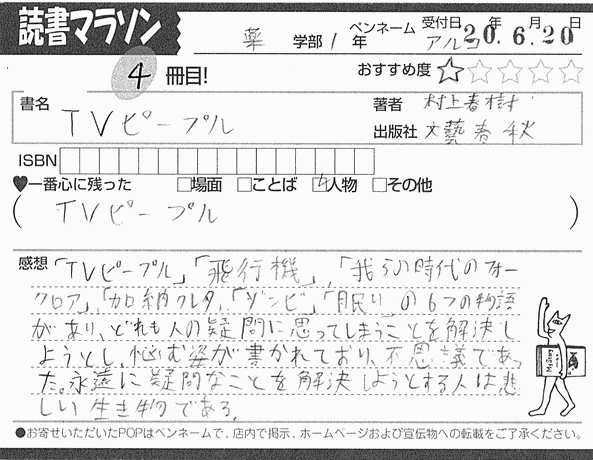 読書マラソン
薬 学部 1 年 ペンネーム アルコ 受付日 20年6月20日
4 冊目!
おすすめ度 ☆☆☆☆☆
書名 TVピープル
著者 村上春樹
出版社 文藝春秋
ISBN
♥一番心に残った □場面 □ことば □人物 □その他
( TVピープル )
感想 「TVピープル」「飛行機」,「我らの時代のフォー
クロア」,「加納クレタ」,「ゾンビ」,「眠り」の6つの物語
があり、どれも人の疑問に思ってしまうことを解決し
ようとし、悩む姿が書かれており、不思議であっ
た。永遠に疑問なことを解決しようとする人は悲
しい生き物である。
●お寄せいただいたPOPはペンネームで、店内で掲示、ホームページおよび宣伝物への転載をご了承ください。